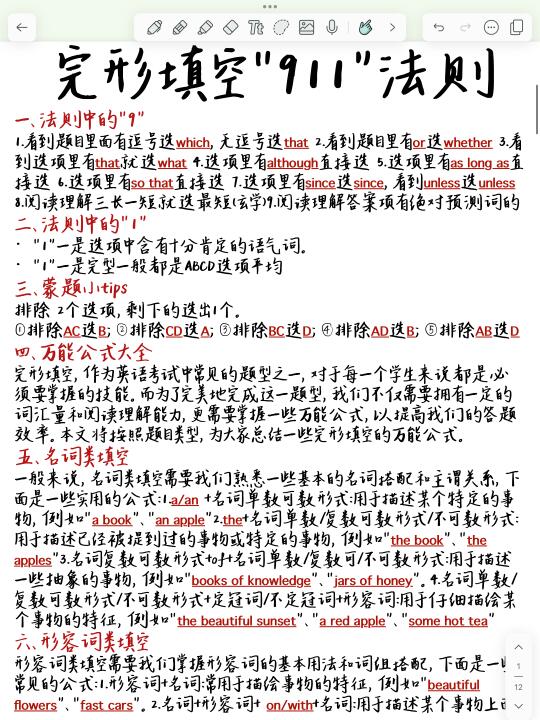 完形填空"911"法则
一、法则中的"9"
1.看到题目里面有逗号选which, 无逗号选that 2.看到题目里有or选whether 3.看
到选项里有that就选what 4.选项里有although直接选 5.选项里有as long as直
接选 6.选项里有so that直接选 7.选项里有since选since, 看到unless选unless
8.阅读理解三长一短就选最短(玄学)9.阅读理解答案项有绝对预测词的
二、法则中的"1"
· "1"一是选项中含有十分肯定的语气词。
· "1"一是完型一般都是ABCD选项平均
三、蒙题小tips
排除 2个选项, 剩下的选出1个。
①排除AC选B; ②排除CD选A; ③排除BC选D; ④排除AD选B; ⑤排除AB选D
四、万能公式大全
完形填空, 作为英语考试中常见的题型之一, 对于每一个学生来说都是必
须要掌握的技能。而为了完美地完成这一题型, 我们不仅需要拥有一定的
词汇量和阅读理解能力, 更需要掌握一些万能公式, 以提高我们的答题
效率。本文将按照题目类型, 为大家总结一些完形填空的万能公式。
五、名词类填空
一般来说, 名词类填空需要我们熟悉一些基本的名词搭配和主谓关系, 下
面是一些实用的公式:1.a/an +名词单数可数形式:用于描述某个特定的事
物, 例如"a book"、"an apple"2.the+名词单数/复数可数形式/不可数形式:
用于描述已经被提到过的事物或特定的事物, 例如"the book"、"the
apples"3.名词复数可数形式+of+名词单数/复数可/不可数形式:用于描述
一些抽象的事物, 例如"books of knowledge"、"jars of honey"。4.名词单数/
复数可数形式/不可数形式+定冠词/不定冠词+形容词:用于仔细描绘某
个事物的特征, 例如"the beautiful sunset"、"a red apple"、"some hot tea"
六、形容词类填空
形容词类填空需要我们掌握形容词的基本用法和词组搭配, 下面是一
常见的公式:1.形容词+名词:常用于描绘事物的特征, 例如"beautiful
flowers"、"fast cars"。2.名词+形容词+ on/with+名词:用于描述某个事物上
1
12